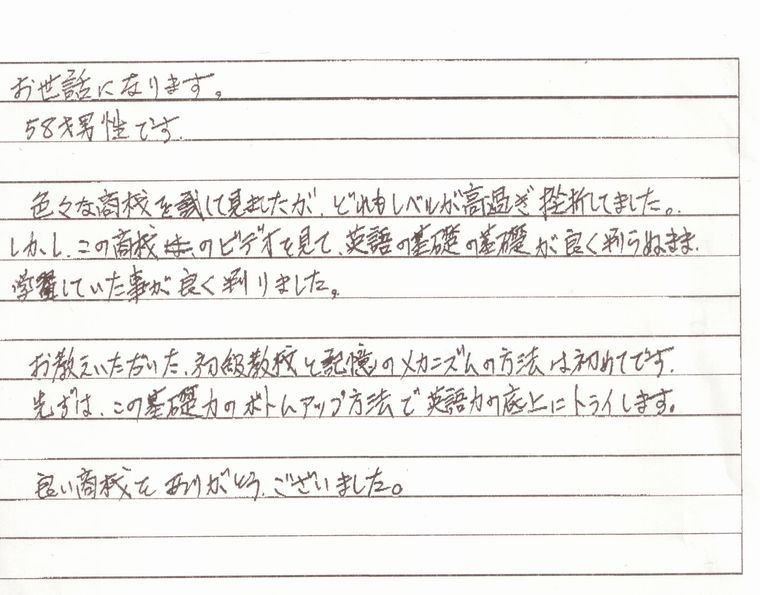 お世話になります。
58才男性です.
色々な商材を試して見ましたが、どれもレベルが高過ぎ挫折してました。
しかし、この商材のビデオを見て、英語の基礎の基礎が良く判らぬまま、
学習していた事が良く判りました。
お教えいただいた、初級教材と記憶のメカニズムの方法は初めてです.
先ずは、この基礎力のボトムアップ方法で英語力の底上にトライします。
良い商材を ありがとう、ございました。